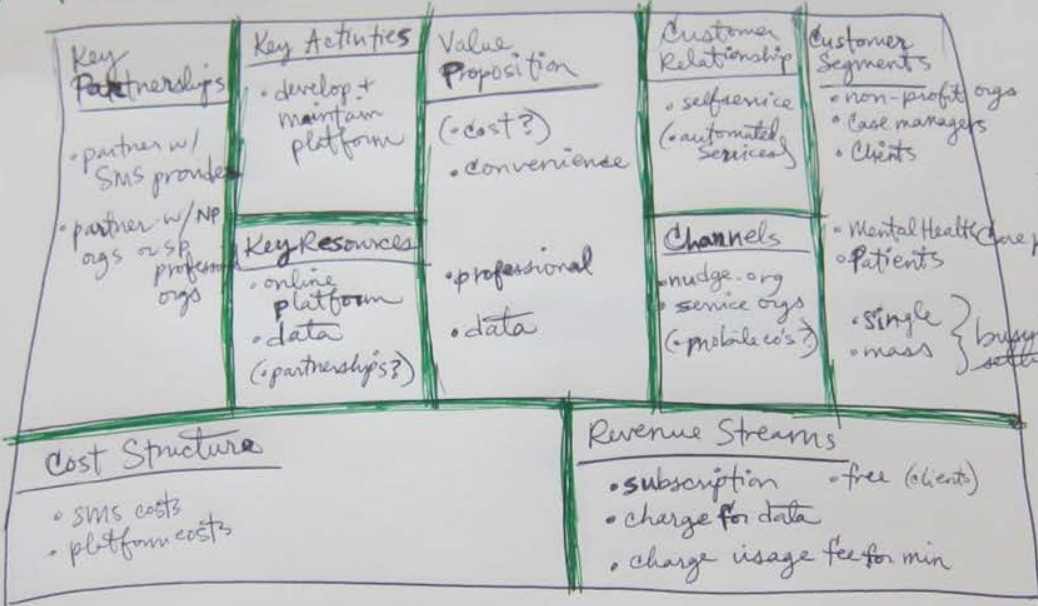 Key
Partnerships
• partner w/
SMS provide
• partner w/ NP
orgs or SP
profession
orgs
Key Activities
• develop +
maintain
platform
Key Resources
• online
platform
• data
(• partnerships?)
Value
Proposition
(• cost?)
• convenience
• professional
• data
Customer
Relationship
• selfservice
(• automated
services)
Channels
• nudge.org
• service orgs
(• mobile co's?)
Customer
Segments
• non-profit orgs
• Case managers
• Clients
• Mental Health Care
• Patients
• single
• mass } busy
Cost Structure
• SMS costs
• platform costs
Revenue Streams
• subscription • free (clients)
• charge for data
• charge usage fee for min